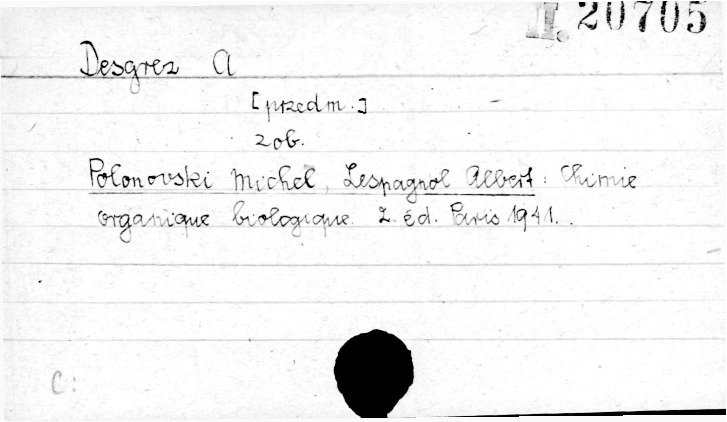 II. 20705
Desgrez A
[przedm.]
zob.
Polonovski Michel, Lespagnol Albert: Chimie
organique biologique. 2. éd. Paris 1941.
C: